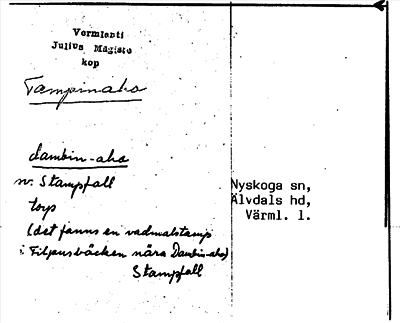 Vermlanti
Julius Mägiste
kop
Tampinaho
dambin-aho
nv. Stampfall
torp
(det fanns en vadmalstamp
i Filpusbäcken nära Dambin-aho)
Stampfall
Nyskoga sn,
Älvdals hd,
Värml. l.